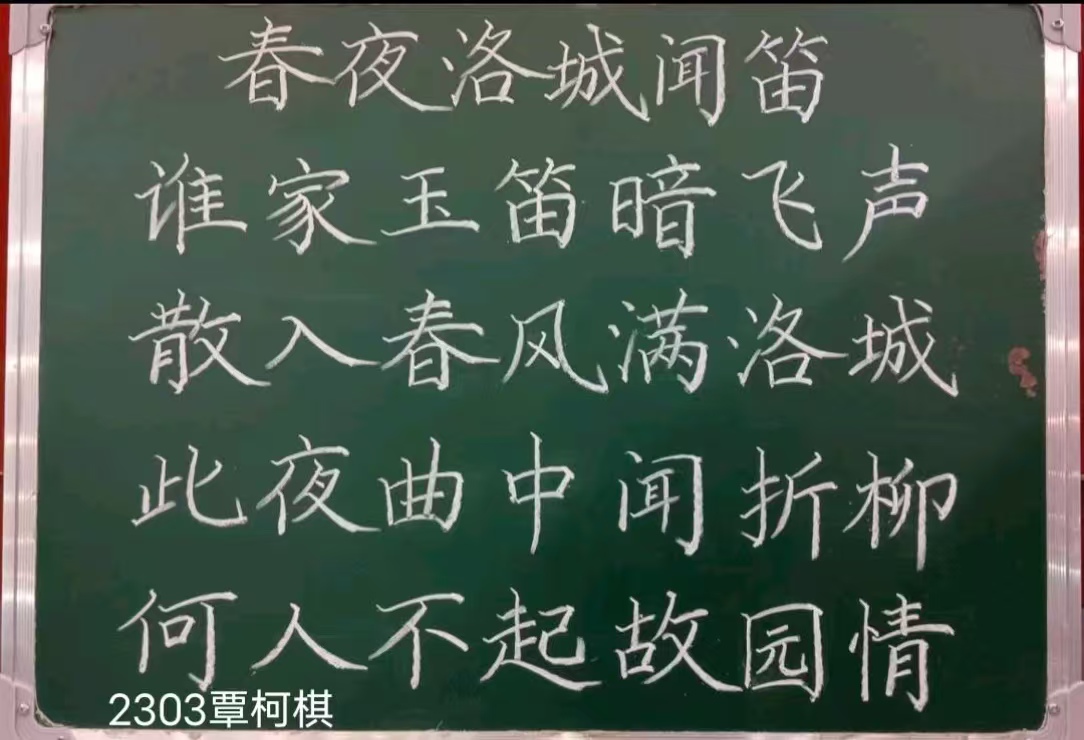 春夜洛城闻笛
谁家玉笛暗飞声
散入春风满洛城
此夜曲中闻折柳
何人不起故园情
2303覃柯棋